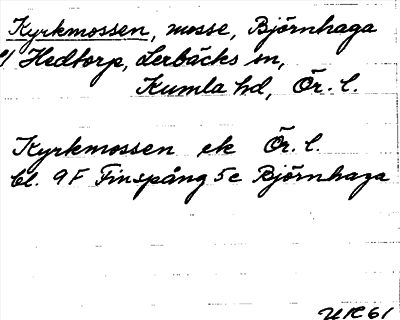 Kyrkmossen, mosse, Björnhaga
u/ Hedtorp, Lerbäcks sn,
Kumla hd, Ör. l.
Kyrkmossen ek Ör. l.
bl. 9F Finspång 5c Björnhaga
UR 61